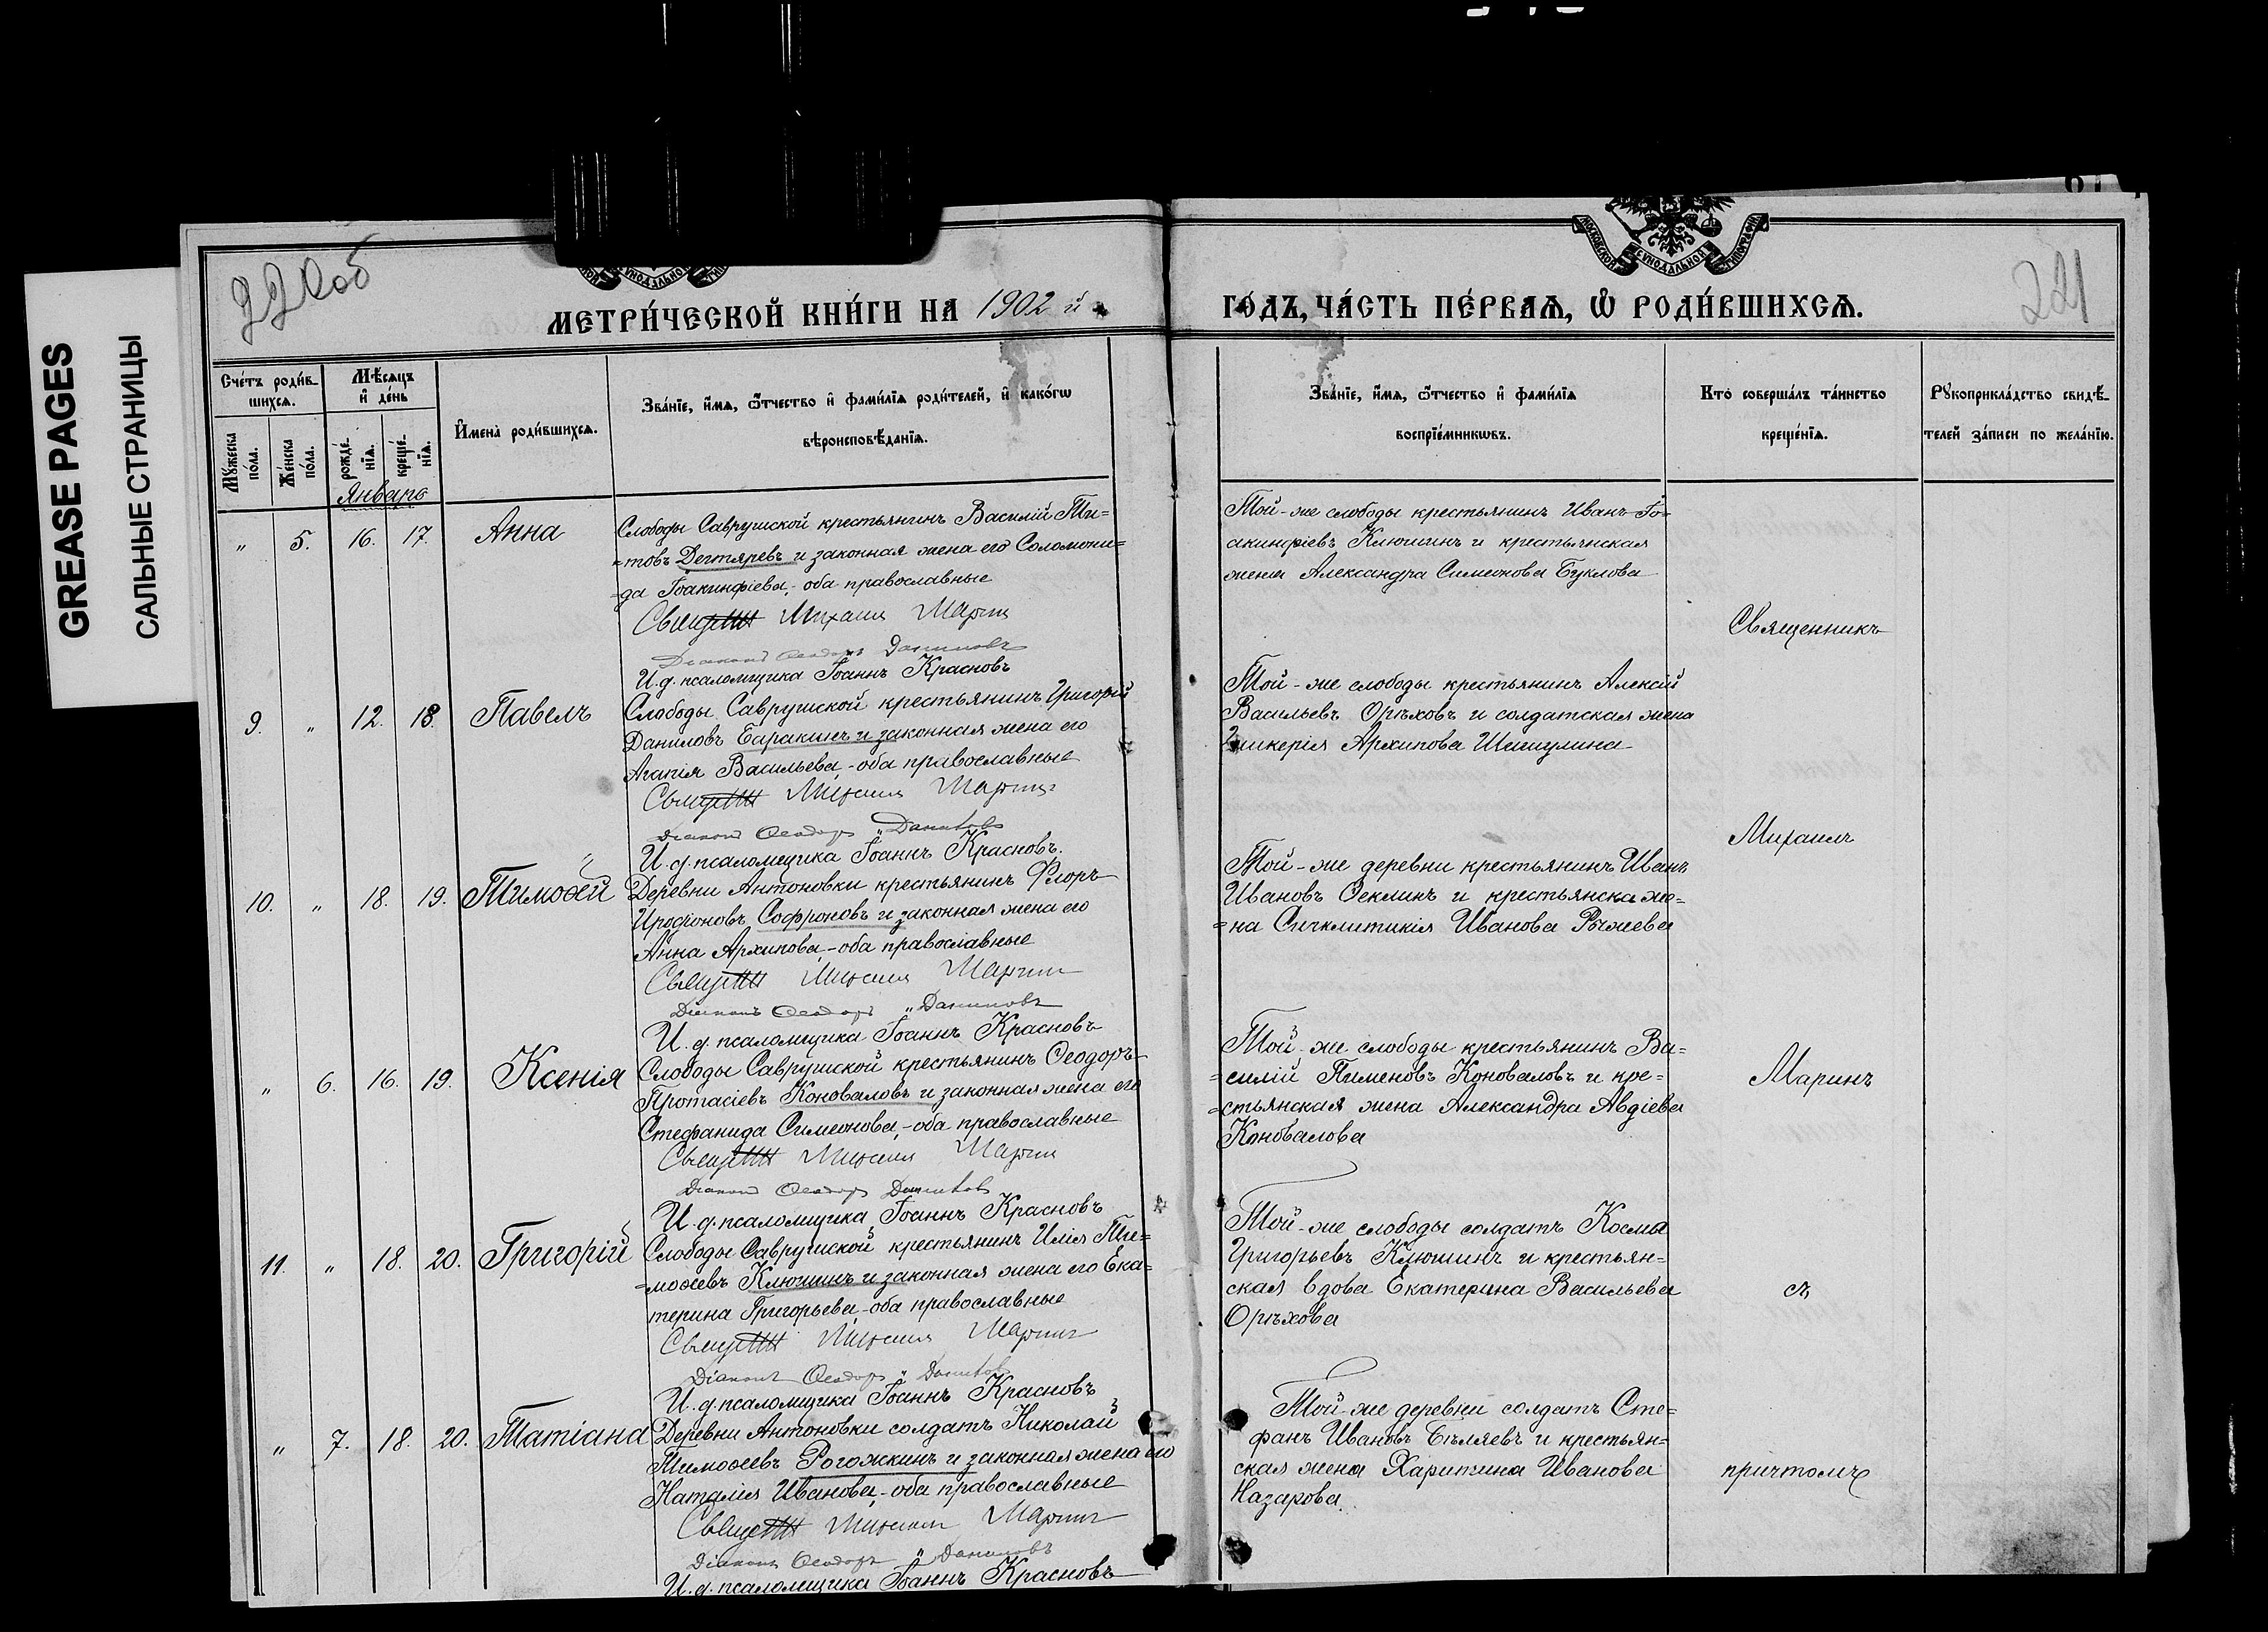 GREASE PAGES
САЛЬНЫЕ СТРАНИЦЫ
220об
221
МЕТРИ́ЧЕСКОЙ КНИ́ГИ НА 1902 й
ГО́ДЪ, ЧА́СТЬ ПЕ́РВАѦ, Ѡ҆ РОДИ́ВШИХСѦ.
МОСКОВСКОЙ СѴНОДАЛЬНОЙ ТѴПОГРАФІИ
Сче́тъ роди́в-
шихсѧ.
Мꙋ́жеска по́ла.
Же́нска по́ла.
Мѣ́сѧцъ
и҆ де́нь
рожде́-нїѧ.
креще́-нїѧ.
Января
И҆мена̀ роди́вшихсѧ.
Зва́нїе, и҆́мѧ, ѻ҆́тчество и҆ фами́лїѧ роди́телей, и҆ како́гѡ
вѣроисповѣ́данїѧ.
Зва́нїе, и҆́мѧ, ѻ҆́тчество и҆ фами́лїѧ
воспрїе́мникѡвъ.
Кто̀ соверша́лъ та́инство
креще́нїѧ.
Рꙋкоприкла́дство свидѣ́-
телей за́писи по жела́нїю.
" 5. 16. 17. Анна
Слободы Саврушской крестьянинъ Василій Ти=
=товъ Дегтяревъ и законная жена его Соломони=
=да Іоакинфіева,-оба православные
Михаил Марин
Діаконъ Ѳеодоръ Даниловъ
И. д. псаломщика Іоаннъ Красновъ
Той-же слободы крестьянинъ Иванъ Іо=
акинфіевъ Клюшинъ и крестьянская
жена Александра Симеонова Буклова
9. " 12. 18. Павелъ
Слободы Саврушской крестьянинъ Григорій
Даниловъ Еаракинъ и законная жена его
Агапія Васильева,-оба православные
Михаил Марин
Діаконъ Ѳеодоръ Даниловъ
И. д. псаломщика Іоаннъ Красновъ.
Той-же слободы крестьянинъ Алексій
Васильевъ Орѣховъ и солдатская жена
Гликерія Архипова Шишулина
10. " 18. 19. Тимоѳей
Деревни Антоновки крестьянинъ Флоръ
Иродіоновъ Софроновъ и законная жена его
Анна Архипова,-оба православные
Михаил Марин
Діаконъ Ѳеодоръ Даниловъ
И. д. псаломщика Іоаннъ Красновъ
Той-же деревни крестьянинъ Иванъ
Ивановъ Ѳеклинъ и крестьянска же=
=на Синклитикія Иванова Рыжева
" 6. 16. 19. Ксенія
Слободы Саврушской крестьянинъ Ѳеодоръ
Протасіевъ Коноваловъ и законная жена его
Стефанида Симеонова,-оба православные
Михаил Марин
Діаконъ Ѳеодоръ Даниловъ
И. д. псаломщика Іоаннъ Красновъ
Той-же слободы крестьянинъ Ва=
=силій Пименовъ Коноваловъ и кре=
=стьянская жена Александра Авдіева
Коновалова
11. " 18. 20. Григорій
Слободы Саврушской крестьянинъ Илія Ти=
=моѳеевъ Клюшинъ и законная жена его Ека=
терина Григорьева,-оба православные
Михаил Марин
Діаконъ Ѳеодоръ Даниловъ
И. д. псаломщика Іоаннъ Красновъ
Той-же слободы солдатъ Косма
Григорьевъ Клюшинъ и крестьян=
ская вдова Екатерина Васильева
Орѣхова
" 7. 18. 20. Татіана
Деревни Антоновки солдатъ Николай
Тимоѳеевъ Рогожкинъ и законная жена его
Наталія Иванова,-оба православные
Михаил Марин
Діаконъ Ѳеодоръ Даниловъ
И. д. псаломщика Іоаннъ Красновъ
Той-же деревни солдатъ Сте=
фанъ Ивановъ Бѣляевъ и крестьян=
ская жена Харитина Иванова
Назарова.
Священникъ
Михаилъ
Маринъ
съ
причтомъ